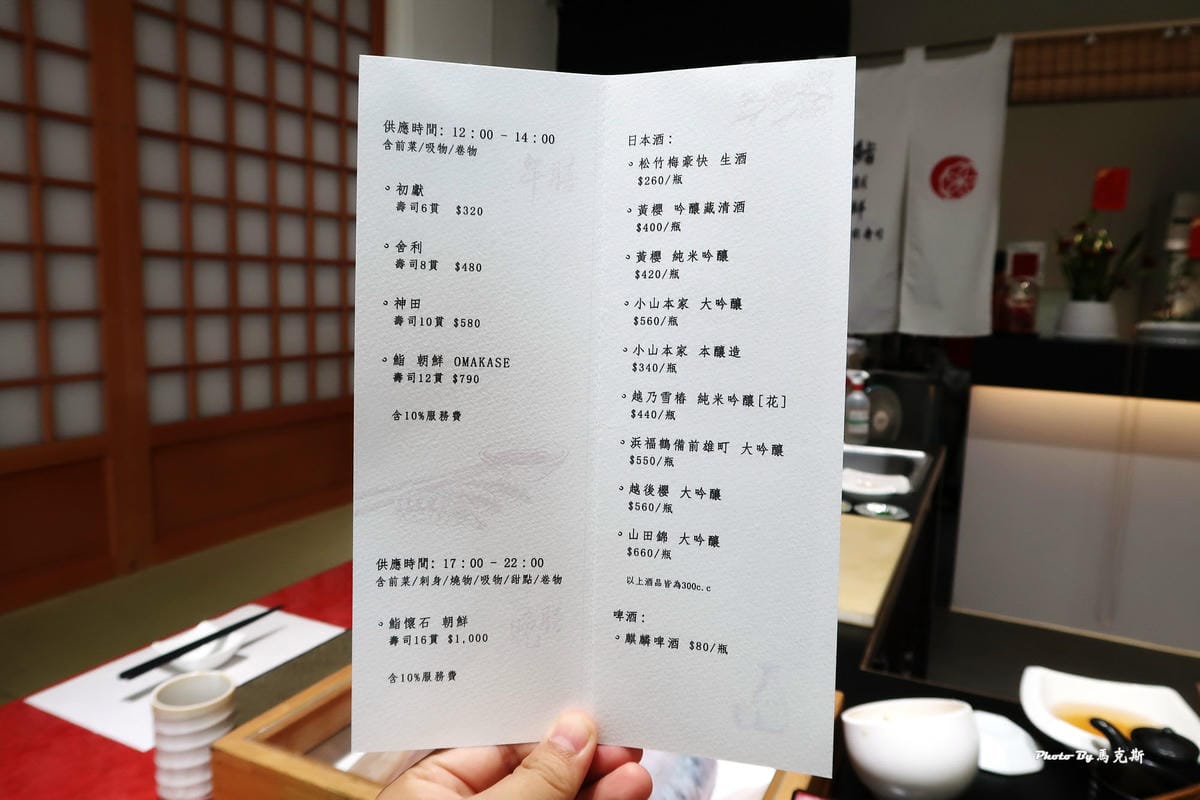 供應時間: 12:00 - 14:00
含前菜/吸物/卷物
。初獻
壽司6貫 $320
。舍利
壽司8貫 $480
。神田
壽司10貫 $580
。鮨 朝鮮 OMAKASE
壽司12貫 $790
含10%服務費
供應時間: 17:00 - 22:00
含前菜/刺身/燒物/吸物/甜點/卷物
。鮨懷石 朝鮮
壽司16貫 $1,000
含10%服務費
日本酒:
。松竹梅豪快 生酒
$260/瓶
。黃櫻 吟釀藏清酒
$400/瓶
。黃櫻 純米吟釀
$420/瓶
。小山本家 大吟釀
$560/瓶
。小山本家 本釀造
$340/瓶
。越乃雪椿 純米吟釀[花]
$440/瓶
。浜福鶴備前雄町 大吟釀
$550/瓶
。越後櫻 大吟釀
$560/瓶
。山田錦 大吟釀
$660/瓶
以上酒品皆為300c.c
啤酒:
。麒麟啤酒 $80/瓶
Photo By 馬克斯